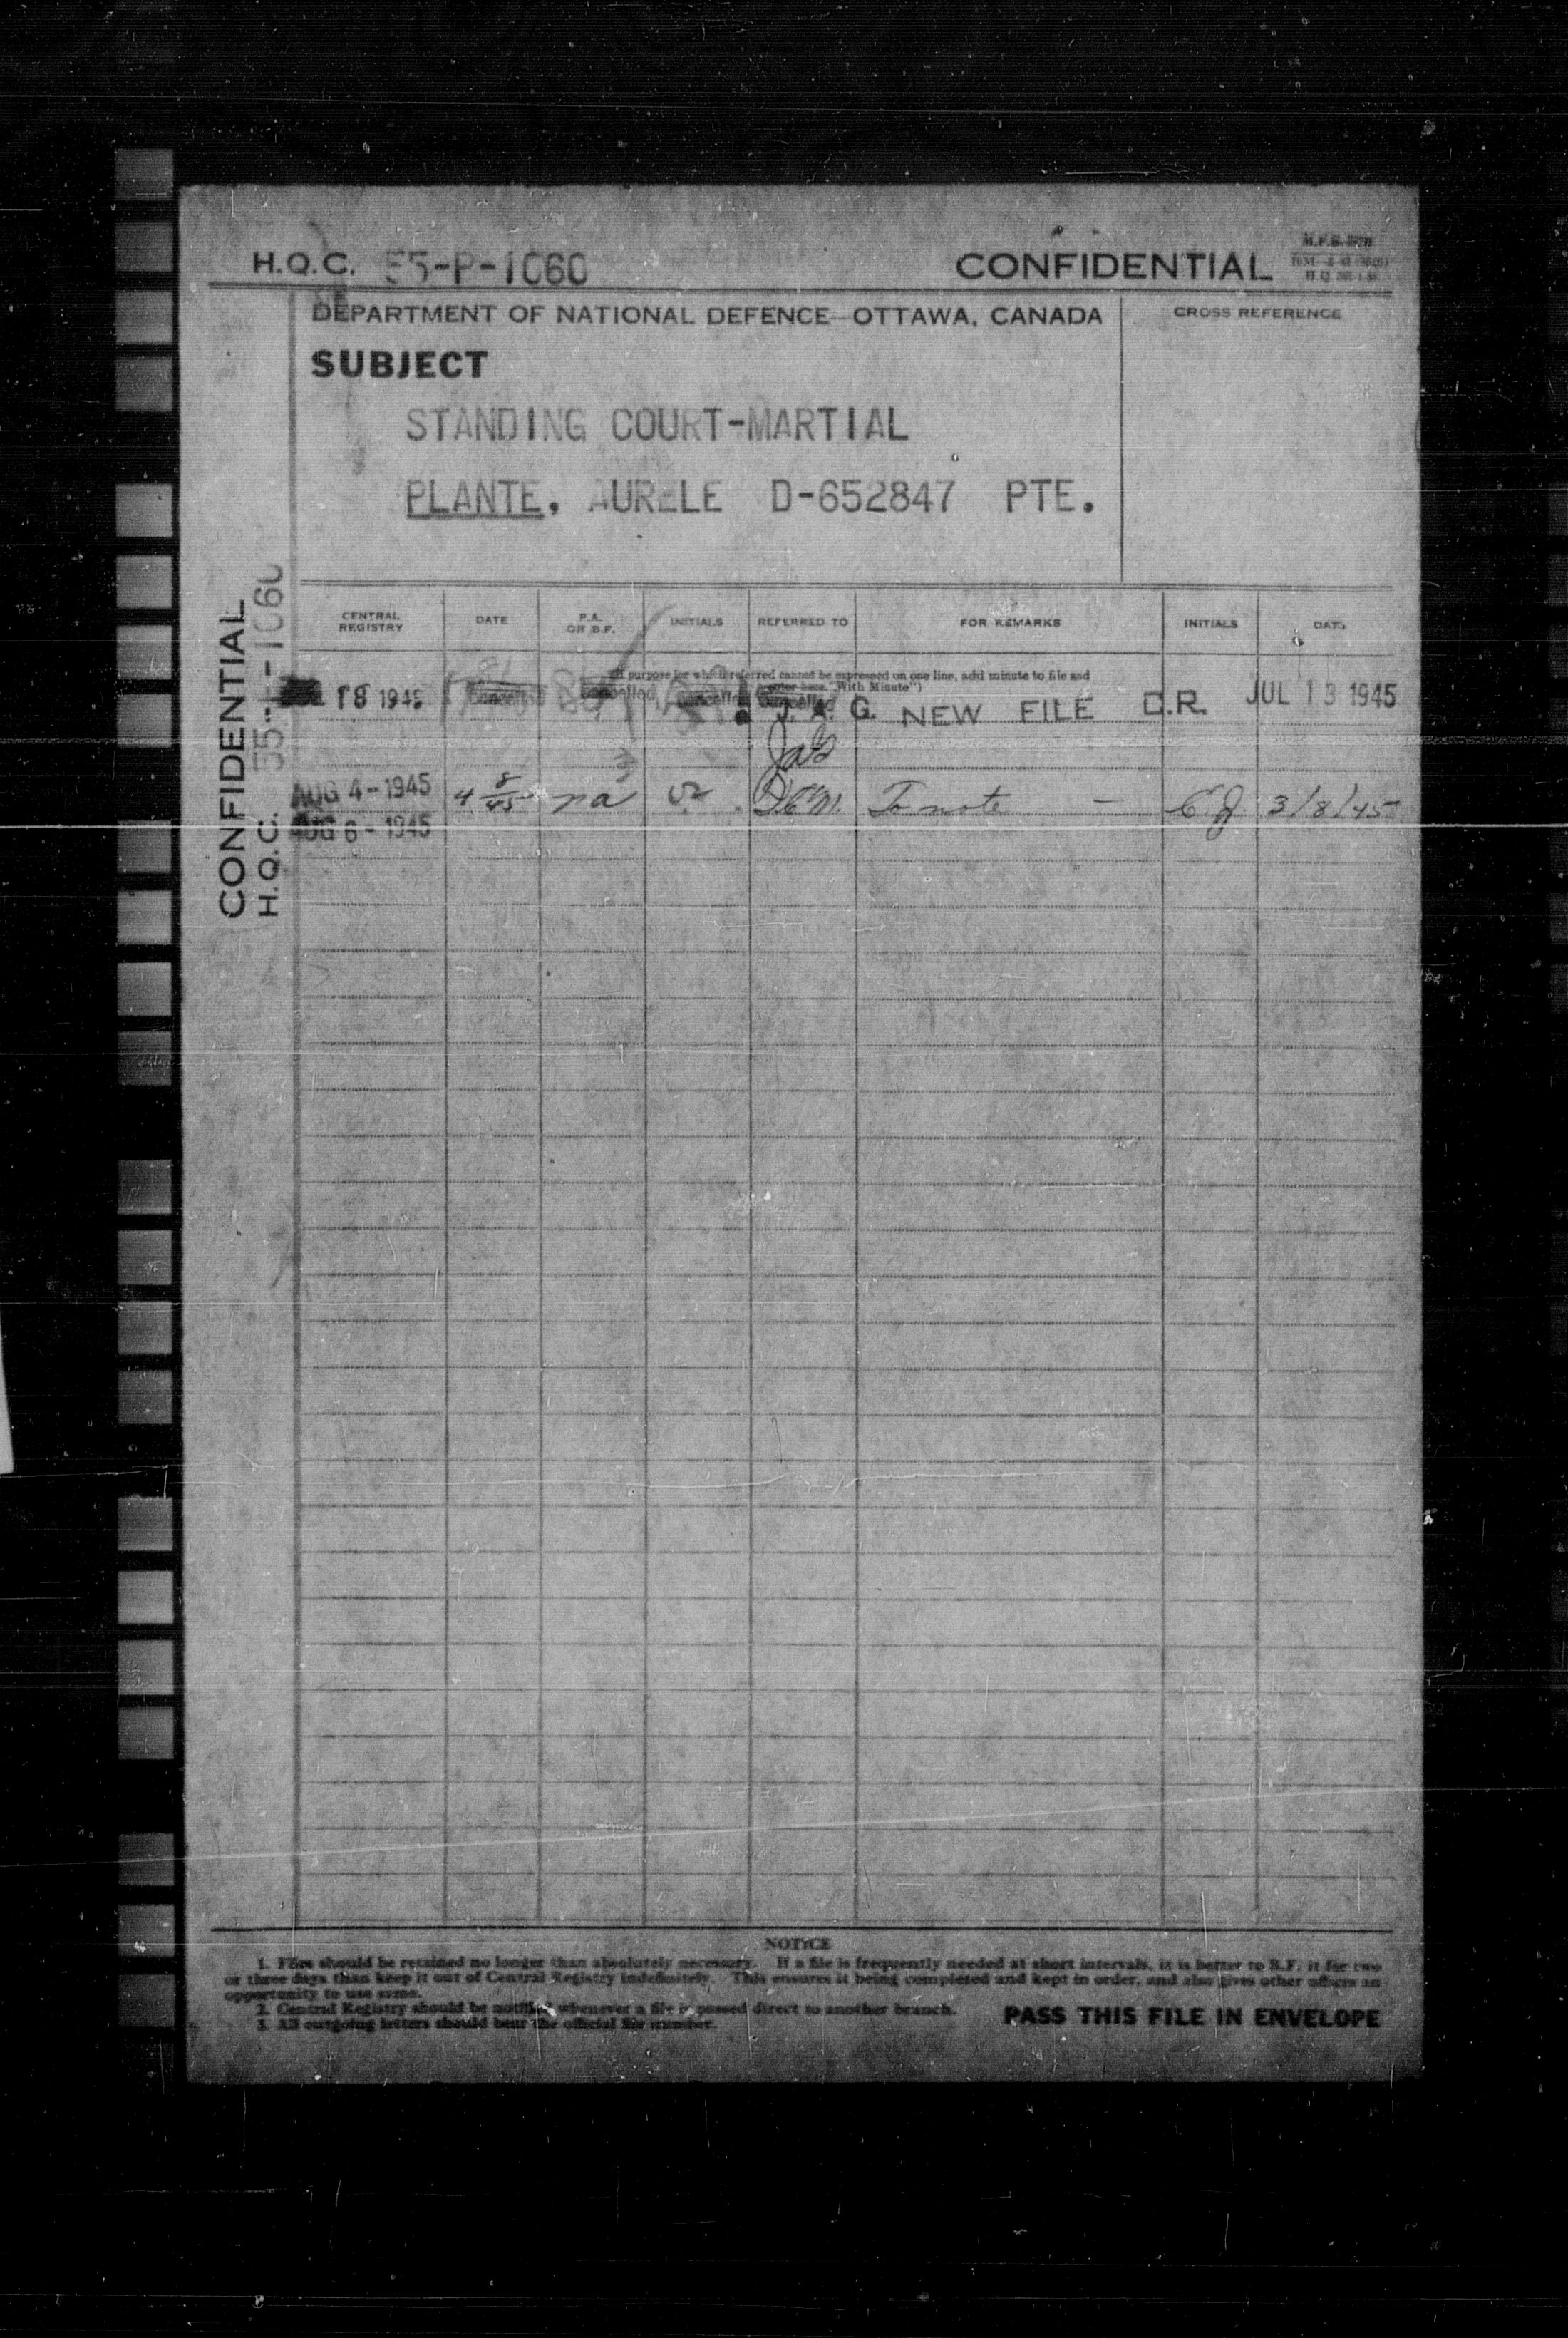 H.Q.C. 55-P-1060
CONFIDENTIAL
DEPARTMENT OF NATIONAL DEFENCE—OTTAWA, CANADA
CROSS REFERENCE
SUBJECT
STANDING COURT-MARTIAL
PLANTE, AURELE D-652847 PTE.
CONFIDENTIAL
H.Q.C. 55-P-1060
CENTRAL REGISTRY DATE P.A. OR B.F. INITIALS REFERRED TO FOR REMARKS INITIALS DATE
(If purpose for which referred cannot be expressed on one line, add minute to file and
enter here "With Minute")
18 1945 Cancelled Cancelled Cancelled Cancelled J. A. G. NEW FILE C.R. JUL 13 1945
JAG
AUG 4-1945 4 8/45 pa To note — 3/8/45
AUG 6-1945
NOTICE
1. Files should be retained no longer than absolutely necessary. If a file is frequently needed at short intervals, it is better to B.F. it for two
or three days than keep it out of Central Registry indefinitely. This ensures it being completed and kept in order, and also gives other officers an
opportunity to use same.
2. Central Registry should be notified whenever a file is passed direct to another branch.
3. All outgoing letters should bear the official file number.
PASS THIS FILE IN ENVELOPE